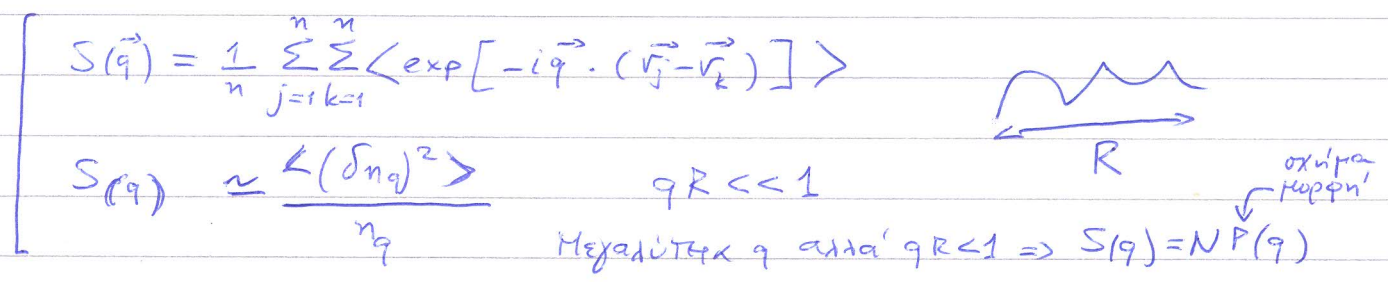 S(q⃗) = 1/n Σ_{j=1}^{n} Σ_{k=1}^{n} <exp[-iq⃗·(r⃗_j-r⃗_k)]>
R
S(q) ≃ <(δn_q)²>/n_q qR<<1
σχήμα
μορφή
Μεγαλύτερα q αλλά qR<1 => S(q)=NP(q)